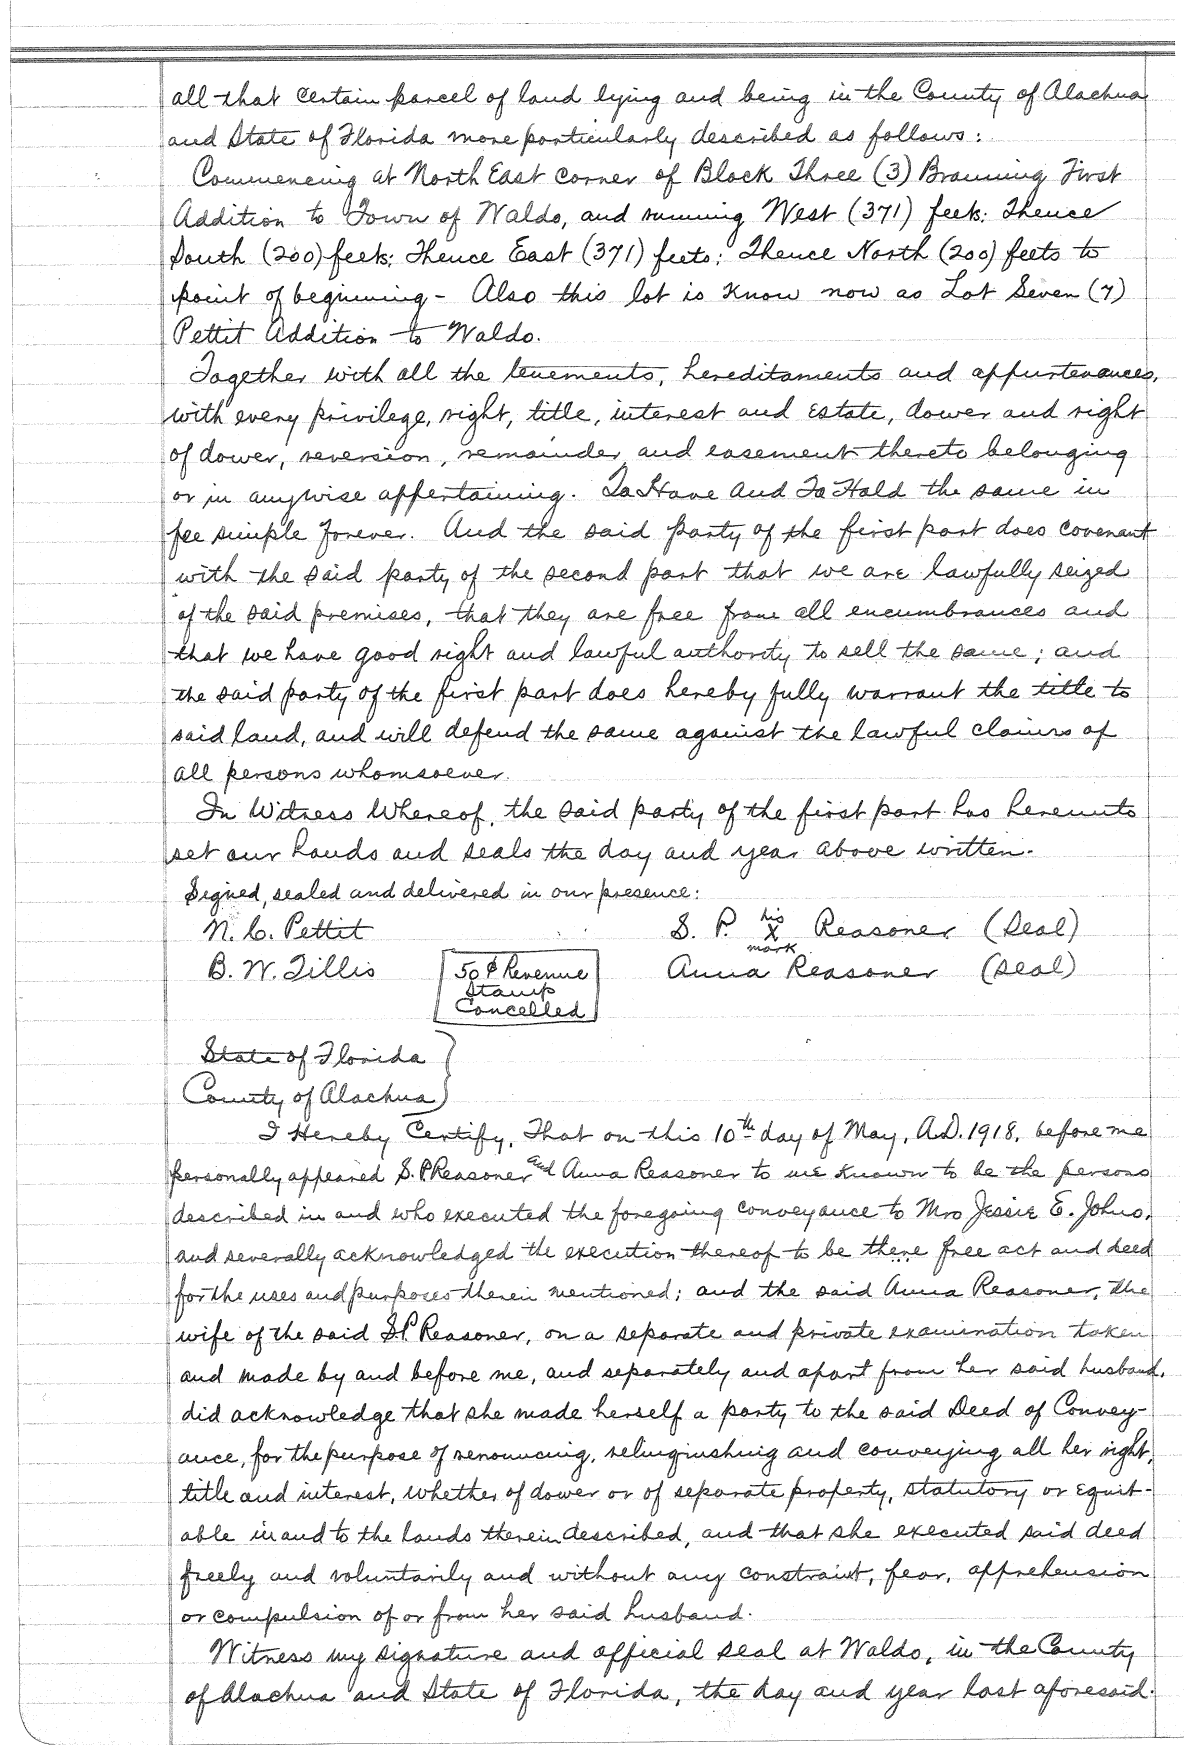 all that certain parcel of land lying and being in the County of Alachua
and State of Florida more particularly described as follows:
Commencing at North East corner of Block Three (3) Branning First
Addition to Town of Waldo, and running West (371) feets: Thence
South (200) feets: Thence East (371) feets: Thence North (200) feets to
point of beginning - Also this lot is Know now as Lot Seven (7)
Pettit Addition to Waldo.
Together with all the tenements, hereditaments and appurtenances,
with every privilege, right, title, interest and Estate, dower and right
of dower, reversion, remainder and easement thereto belonging
or in anywise appertaining. To Have And To Hold the same in
fee simple forever. And the said party of the first part does covenant
with the said party of the second part that we are lawfully seized
of the said premises, that they are free from all encumbrances and
that we have good right and lawful authority to sell the same; and
the said party of the first part does hereby fully warrant the title to
said land, and will defend the same against the lawful claims of
all persons whomsoever.
In Witness Whereof, the said party of the first part has hereunto
set our hands and seals the day and year above written.
Signed, sealed and delivered in our presence:
N. C. Pettit S. P. his X mark Reasoner (Seal)
B. W. Tillis Anna Reasoner (Seal)
50¢ Revenue
Stamp
Cancelled
State of Florida
County of Alachua
I Hereby Certify, That on this 10th day of May, A.D. 1918, before me
personally appeared S.P. Reasoner and Anna Reasoner to me known to be the persons
described in and who executed the foregoing conveyance to Mrs Jessie E. Johns,
and severally acknowledged the execution thereof to be there free act and deed
for the uses and purposes therein mentioned; and the said Anna Reasoner, the
wife of the said S.P. Reasoner, on a separate and private examination taken
and made by and before me, and separately and apart from her said husband,
did acknowledge that she made herself a party to the said Deed of Convey-
ance, for the purpose of renouncing, relinquishing and conveying all her right,
title and interest, whether of dower or of separate property, statutory or equit-
able in and to the lands therein described, and that she executed said deed
freely and voluntarily and without any constraint, fear, apprehension
or compulsion of or from her said husband.
Witness my signature and official seal at Waldo, in the County
of Alachua and State of Florida, the day and year last aforesaid.